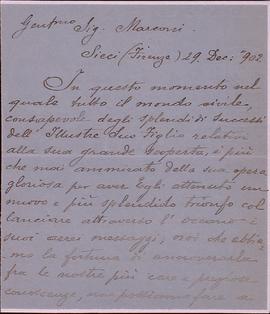 Gentmo Sig. Marconi.
Sieci (Firenze) 29 Dec: 902.
In questo momento nel
quale tutto il mondo civile,
consapevole degli splendidi successi
dell'Illustre suo Figlio relativi
alla sua grande scoperta, è più
che mai ammirato della sua opera
gloriosa per aver Egli ottenuto un
nuovo e più splendido trionfo col
lanciare attraverso l'oceano i
suoi aerei messaggi, noi che abbia-
mo la fortuna di annoverarla
fra le nostre più care e pregiose
conoscenze, non possiamo fare a